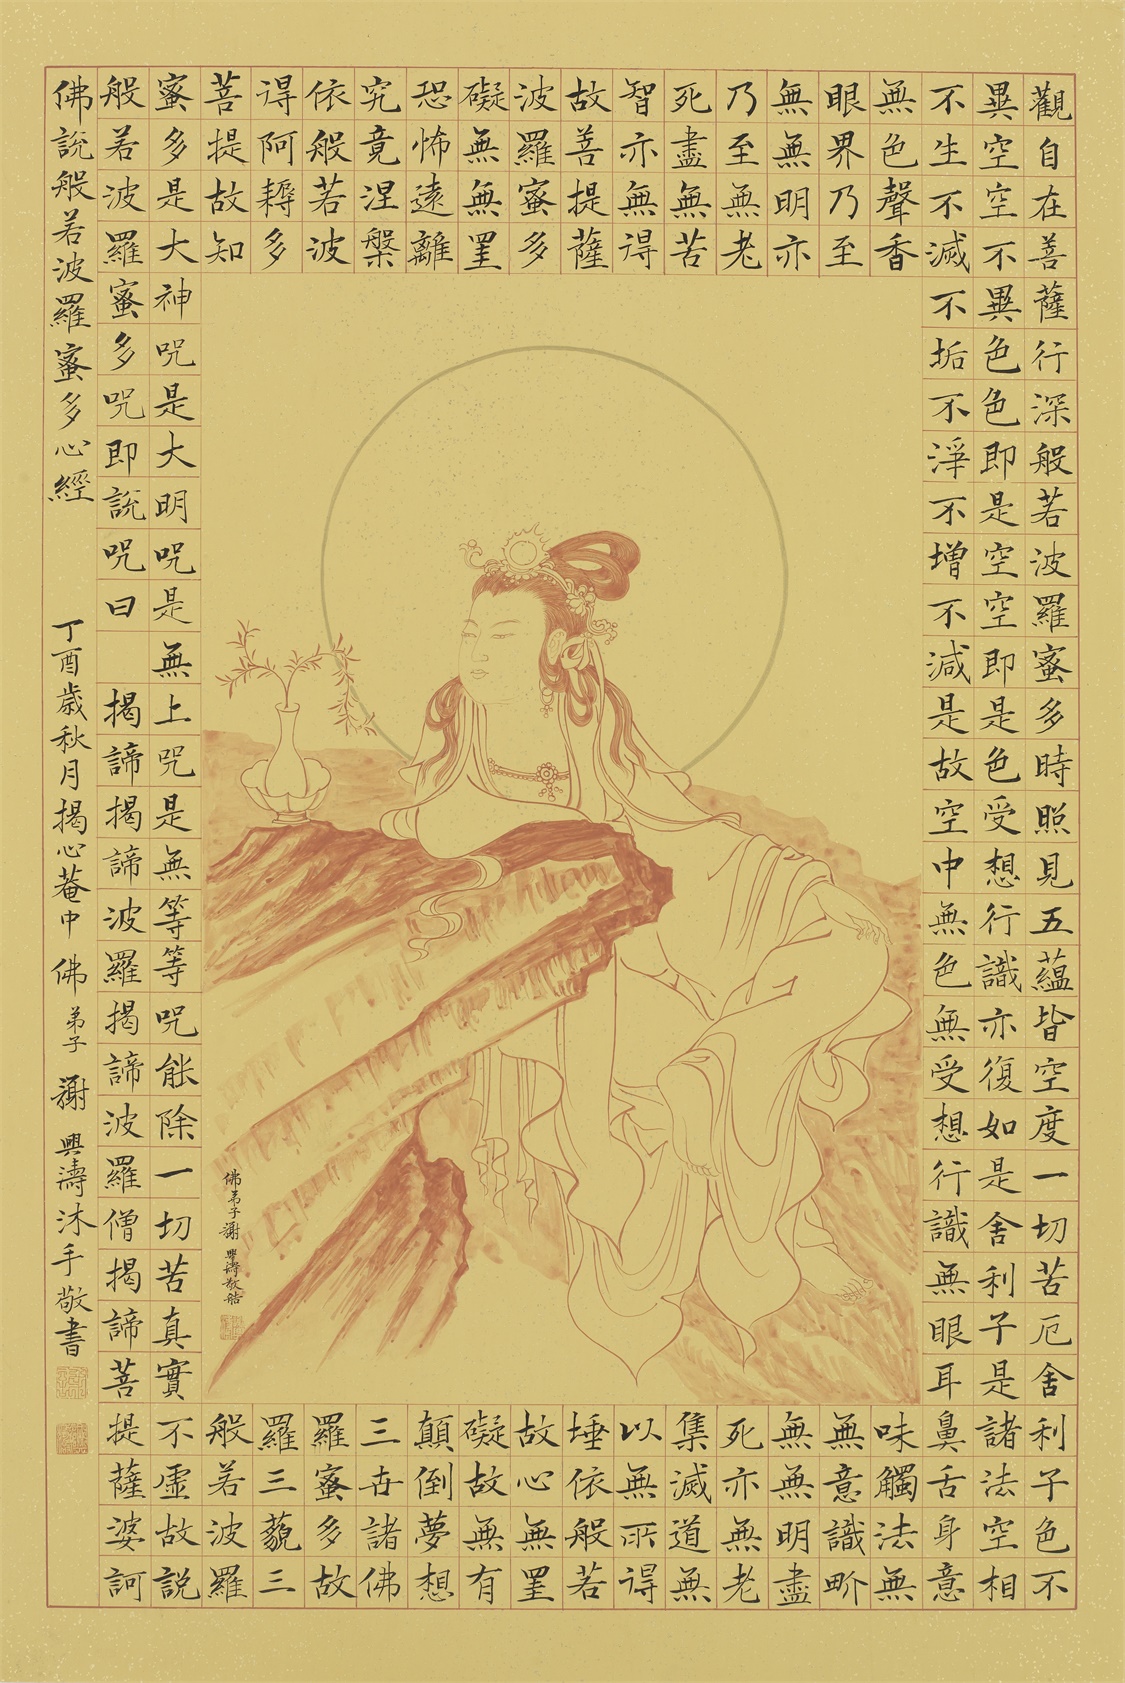 觀自在菩薩行深般若波羅蜜多時照見五蘊皆空度一切苦厄舍利子色不
異空空不異色色即是空空即是色受想行識亦復如是舍利子是諸法空相
不生不滅不垢不淨不增不減是故空中無色無受想行識無眼耳鼻舌身意
無色聲香味觸法無
眼界乃至無意識畍
無無明亦無無明盡
乃至無老死亦無老
死盡無苦集滅道無
智亦無得以無所得
故菩提薩埵依般若
波羅蜜多故心無罣
礙無無罣礙故無有
恐怖遠離顛倒夢想
究竟涅槃三世諸佛
依般若波羅蜜多故
得阿耨多羅三藐三
菩提故知般若波羅
蜜多是大神咒是大明咒是無上咒是無等等咒能除一切苦真實不虛故說
般若波羅蜜多咒即說咒曰 揭諦揭諦波羅揭諦波羅僧揭諦菩提薩婆訶
佛說般若波羅蜜多心經 丁酉歲秋月揭心菴中 佛弟子謝興濤沐手敬書
佛弟子謝興濤敬皓